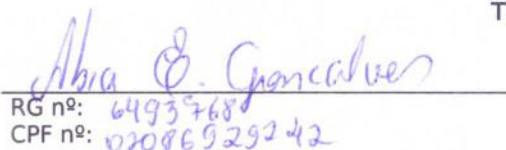 T
Abia E. Gonçalves
RG nº: 6493768
CPF nº: 02086929242